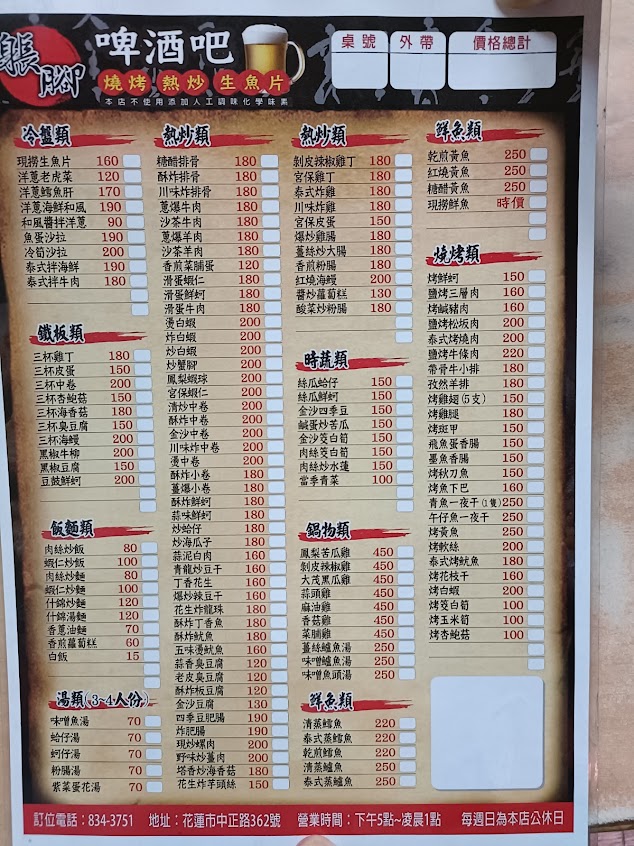 張腳
啤酒吧
燒烤 熱炒 生魚片
本店不使用添加人工調味化學味素
桌號 外帶 價格總計
冷盤類
現撈生魚片 160
洋蔥老虎菜 120
洋蔥鱈魚肝 170
洋蔥海鮮和風 190
和風醬拌洋蔥 90
魚蛋沙拉 190
冷筍沙拉 200
泰式拌海鮮 190
泰式拌牛肉 180
鐵板類
三杯雞丁 180
三杯皮蛋 150
三杯中卷 200
三杯杏鮑菇 150
三杯海香菇 180
三杯臭豆腐 150
三杯海鰻 200
黑椒牛柳 200
黑椒豆腐 150
豆鼓鮮蚵 200
飯麵類
肉絲炒飯 80
蝦仁炒飯 100
肉絲炒麵 80
蝦仁炒麵 100
什錦炒麵 120
什錦湯麵 120
香蔥油麵 70
香煎蘿蔔糕 60
白飯 15
湯類(3~4人份)
味噌魚湯 70
蛤仔湯 70
蚵仔湯 70
粉腸湯 70
紫菜蛋花湯 70
熱炒類
糖醋排骨 180
酥炸排骨 180
川味炸排骨 180
蔥爆牛肉 180
沙茶牛肉 180
蔥爆羊肉 180
沙茶羊肉 180
香煎菜脯蛋 120
滑蛋蝦仁 180
滑蛋鮮蚵 180
滑蛋牛肉 180
燙白蝦 200
炸白蝦 200
炒白蝦 200
炒蟹腳 180
鳳梨蝦球 200
宮保蝦仁 200
清炒中卷 200
酥炸中卷 200
金沙中卷 200
川味炸中卷 200
燙中卷 200
酥炸小卷 180
薑爆小卷 180
酥炸鮮蚵 180
蒜味鮮蚵 180
炒蛤仔 180
炒海瓜子 180
蒜泥白肉 160
青龍炒豆干 160
丁香花生 160
爆炒辣豆干 160
花生炸龍珠 180
酥炸丁香魚 180
酥炸魷魚 180
五味燙魷魚 160
蒜香臭豆腐 120
老皮臭豆腐 120
酥炸板豆腐 120
金沙豆腐 130
四季豆肥腸 190
炸肥腸 190
現炒螺肉 200
野味炒薑肉 200
塔香炒海香菇 180
花生炸芋頭絲 150
熱炒類
剝皮辣椒雞丁 180
宮保雞丁 180
泰式炸雞 180
川味炸雞 180
宮保皮蛋 150
爆炒雞腸 180
薑絲炒大腸 180
香煎粉腸 180
紅燒海鰻 200
醬炒蘿蔔糕 130
酸菜炒粉腸 180
時蔬類
絲瓜蛤仔 150
絲瓜鮮蚵 150
金沙四季豆 150
鹹蛋炒苦瓜 150
金沙筊白筍 150
肉絲筊白筍 150
肉絲炒水蓮 150
當季青菜 100
鍋物類
鳳梨苦瓜雞 450
剝皮辣椒雞 450
大茂黑瓜雞 450
蒜頭雞 450
麻油雞 450
香菇雞 450
菜脯雞 450
薑絲鱸魚湯 250
味噌鱸魚湯 250
味噌魚頭湯 250
鮮魚類
清蒸鱈魚 220
泰式蒸鱈魚 220
乾煎鱈魚 220
清蒸鱸魚 250
泰式蒸鱸魚 250
鮮魚類
乾煎黃魚 250
紅燒黃魚 250
糖醋黃魚 250
現撈鮮魚 時價
燒烤類
烤鮮蚵 150
鹽烤三層肉 160
烤鹹豬肉 160
鹽烤松坂肉 200
泰式烤燒肉 200
鹽烤牛條肉 220
帶骨牛小排 180
孜然羊排 180
烤雞翅(5支) 150
烤雞腿 180
烤斑甲 150
飛魚蛋香腸 150
墨魚香腸 150
烤秋刀魚 150
烤魚下巴 160
青魚一夜干(1隻) 250
午仔魚一夜干 250
烤黃魚 250
烤軟絲 200
泰式烤魷魚 180
烤花枝干 160
烤白蝦 200
烤筊白筍 100
烤玉米筍 100
烤杏鮑菇 100
訂位電話:834-3751 地址:花蓮市中正路362號 營業時間:下午5點~凌晨1點 每週日為本店公休日